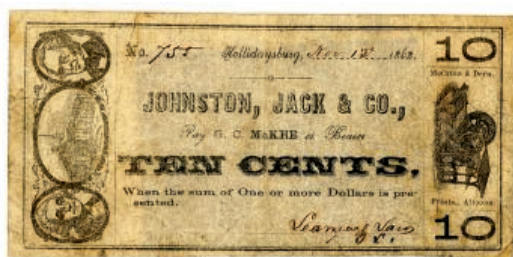 No. 755 Hollidaysburg, Nov. 12 1862
10
McCrum & Dern,
JOHNSTON, JACK & CO.,
Pay G. C. McKEE or Bearer
TEN CENTS.
When the sum of One or more Dollars is pre-
sented.
Prints., Altoona
10